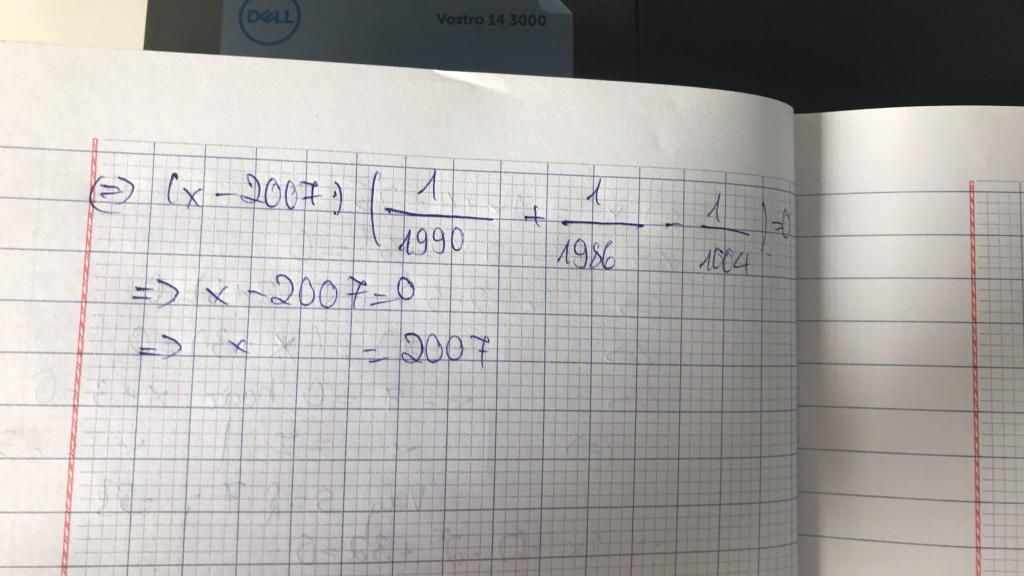 DELL Vostro 14 3000
(=) (x - 2007) ( 1/1990 + 1/1986 - 1/1004 ) = 0
=> x - 2007 = 0
=> x = 2007